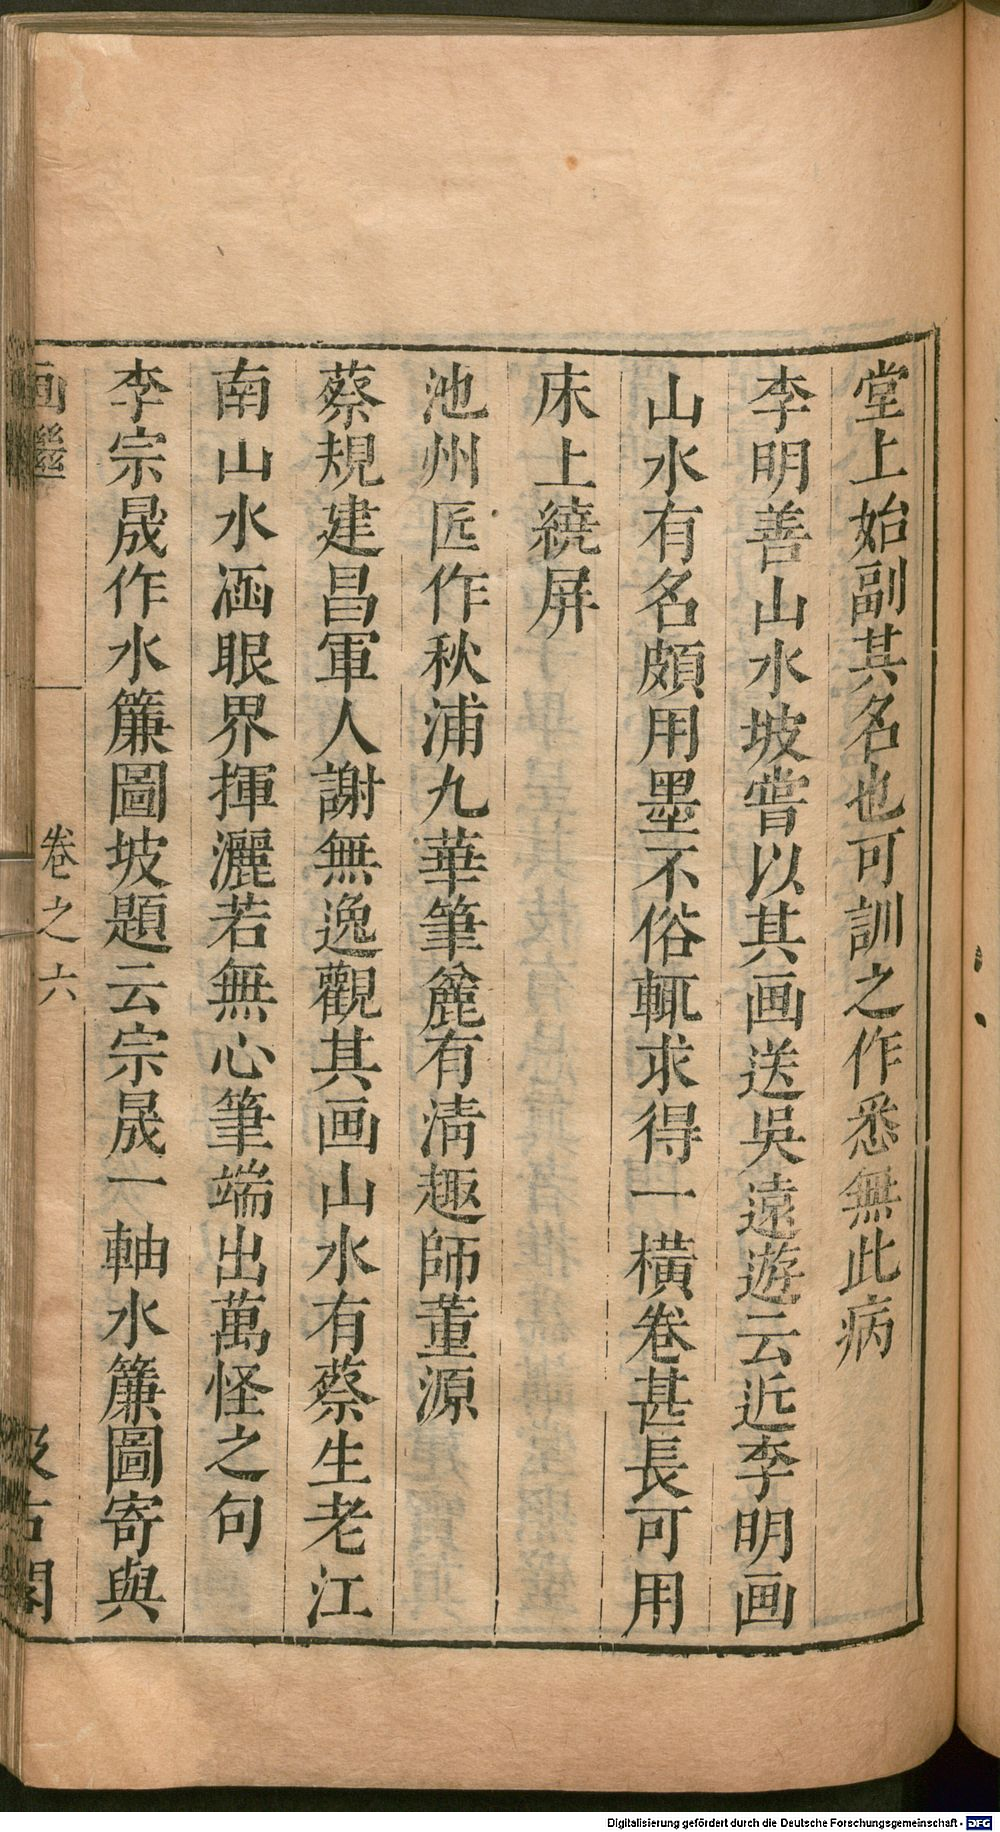 堂上始副其名也可訓之作悉無此病
李明善山水坡嘗以其画送吳遠遊云近李明画
山水有名頗用墨不俗輒求得一橫卷甚長可用
床上繞屏
池州匠作秋浦九華筆麄有淸趣師董源
蔡規建昌軍人謝無逸觀其画山水有蔡生老江
南山水涵眼界揮灑若無心筆端出萬怪之句
李宗晟作水簾圖坡題云宗晟一軸水簾圖寄與
画繼
卷之六
汲古閣
Digitalisierung gefördert durch die Deutsche Forschungsgemeinschaft - DFG